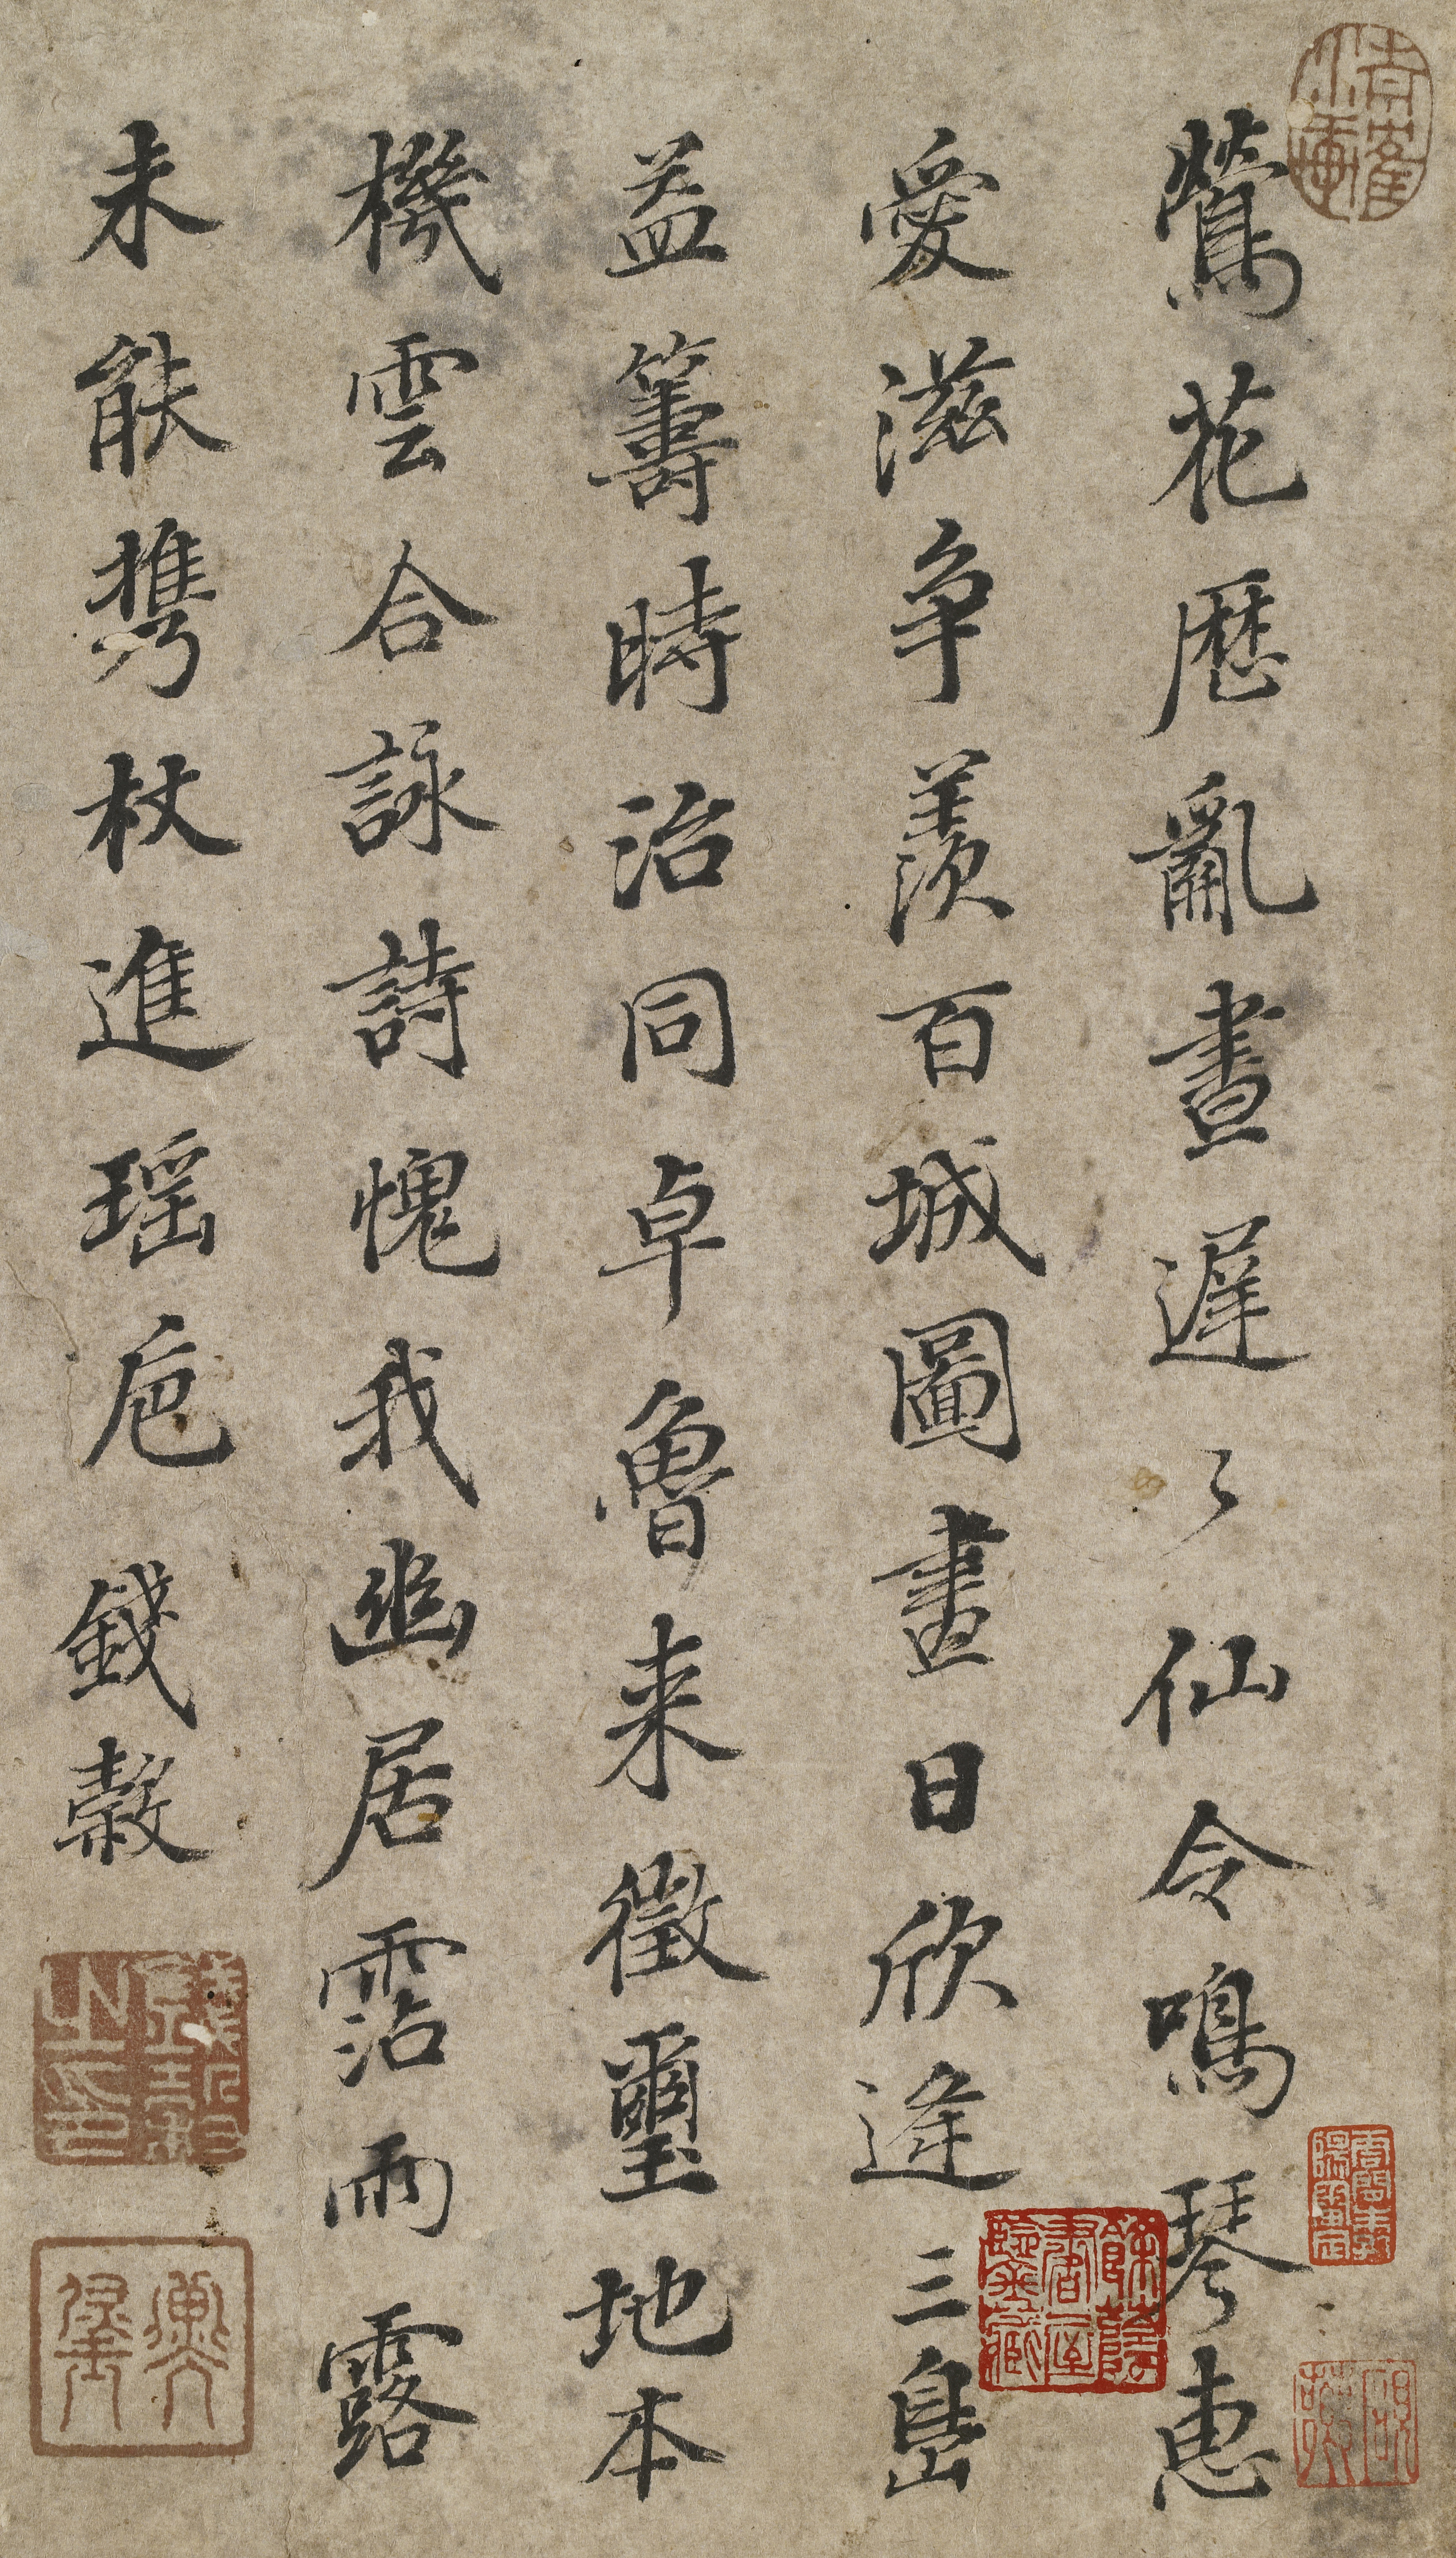 鶯花歷亂晝遲〻仙令鳴琴惠
愛滋爭羨百城圖畫日欣逢三島
益籌時治同卓魯来徵璽地本
機雲合詠詩愧我幽居霑雨露
未能携杖進瑤卮 錢穀